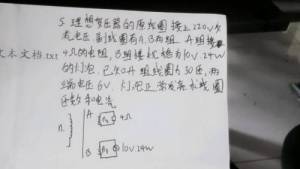 5 理想变压器的原线圈接上220V交
流电压 副线圈有A.B两组. A组接
本文档.txt 4Ω的电阻, B组接规格为10V 24W
的灯泡. 已知A组线圈为30匝, 两
端电压6V. 灯泡正常发光 求线圈
匝数和电流
n₁ A 4Ω
B 10V 24W